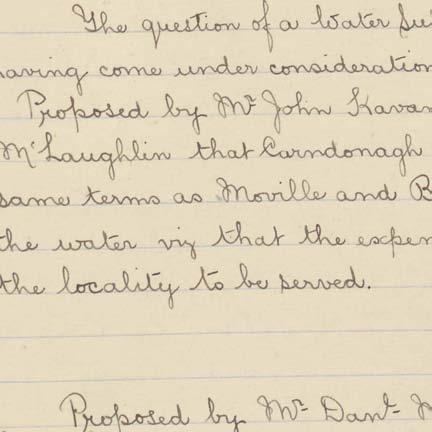 The question of a Water Su
having come under consideration
Proposed by Mr John Kavan
McLaughlin that Carndonagh
same terms as Moville and B
the water viz that the expen
the locality to be served.
Proposed by Mr Danl